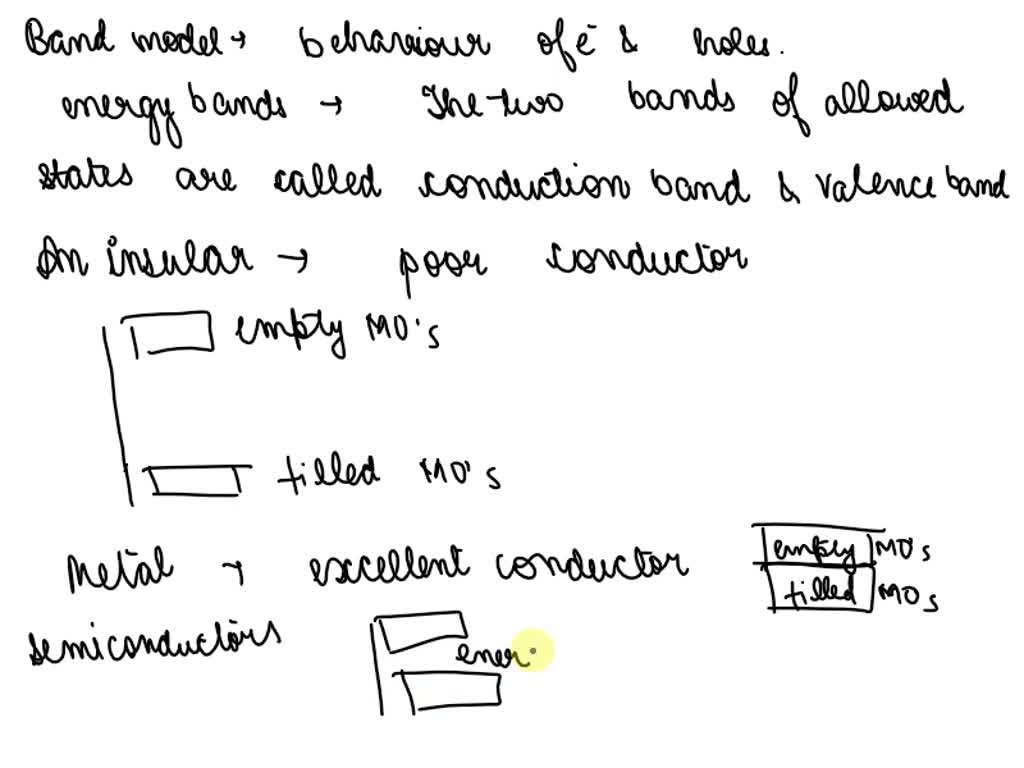 Band model → behaviour of ē & holes.
energy bands → The two bands of allowed
states are called conduction band & valence band
An insular → poor conductor
empty MO's
filled MO's
Metal → excellent conductor
empty MO's
filled MOs
semiconductors
ener